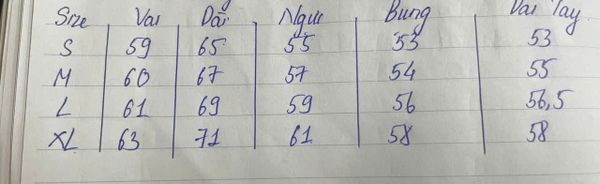 Size Vai Dài Ngực Bụng Dài Tay
S 59 65 55 53 53
M 60 67 57 54 55
L 61 69 59 56 56,5
XL 63 71 61 58 58